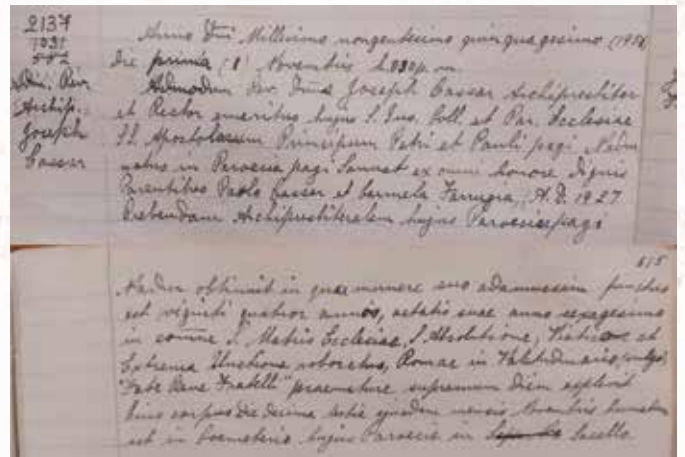 2137
1031
552
Adm. Rev
Archip.
Joseph
Cassar
Anno Dni Millesimo nongentesimo quinquagesimo (195
die prima (1) Novembris h.
Admodum Rev Dnus Joseph Cassar Archipresbiter
et Rector emeritus hujus S. Ins. Coll. et Par. Ecclesiae
SS. Apostolorum Principum Petri et Pauli pagi Nadur
natus in Paroecia pagi Sannat ex omni honore dignis
Parentibus Paolo Cassar et Carmela Farrugia, A.D. 1927
Prebendam Archipresbiteralem hujus Paroeciae pagi
615
Nadur obtinuit in quae munere suo adamussim functus
est viginti quatuor annos, aetatis suae anno sexagesimo
in comne S. Matris Ecclesiae, S. Absolutione, Viatico et
Extrema Unctione roboratus, Romae in Valetudinario, vulgo
"Fate Bene Fratelli" praemature supremum diem explevit
hujus corpus die decima ejusdem mensis Novembris humatum
est in Coemeterio hujus Paroecie in Sacello.